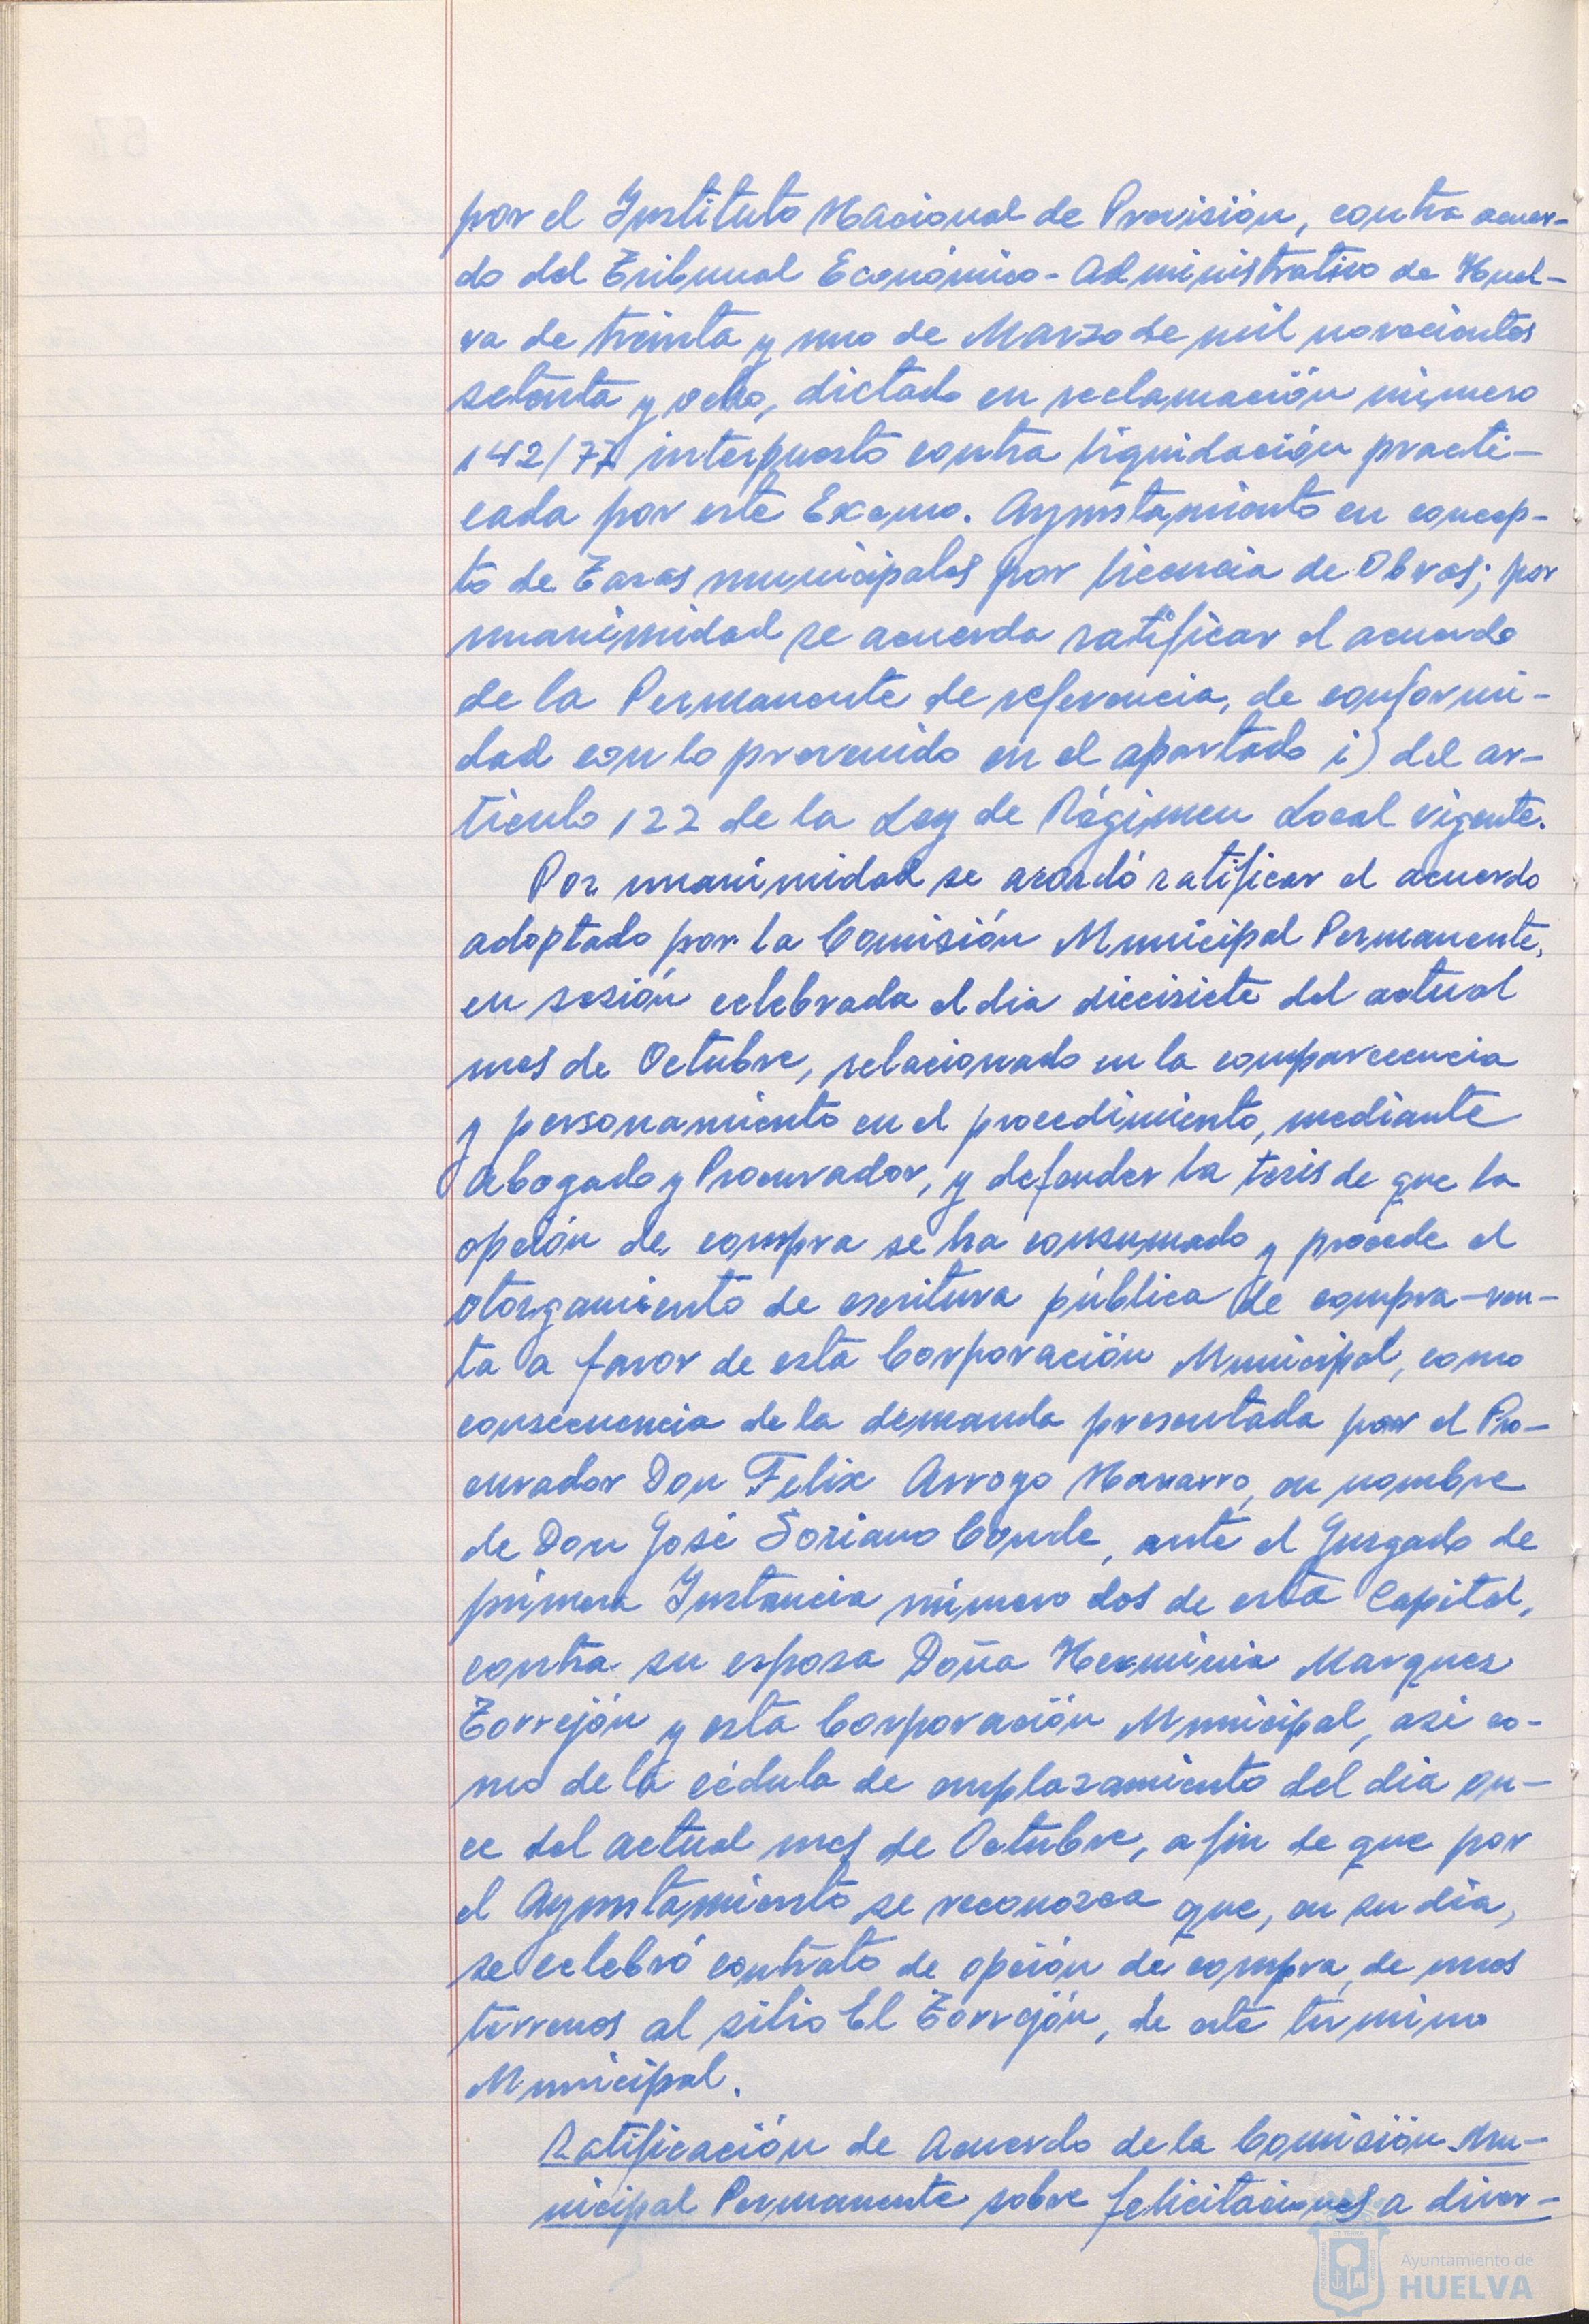 por el Instituto Nacional de Previsión, contra acuer-
do del Tribunal Económico-Administrativo de Huel-
va de treinta y uno de Marzo de mil novecientos
setenta y ocho, dictado en reclamación número
142/77 interpuesto contra liquidación practi-
cada por este Excmo. Ayuntamiento en concep-
to de Tasas municipales por licencia de Obras; por
unanimidad se acuerda ratificar el acuerdo
de la Permanente de referencia, de conformi-
dad con lo prevenido en el apartado i) del ar-
tículo 122 de la Ley de Régimen Local vigente.
Por unanimidad se acordó ratificar el acuerdo
adoptado por la Comisión Municipal Permanente,
en sesión celebrada el dia diecisiete del actual
mes de Octubre, relacionado en la comparecencia
y personamiento en el procedimiento, mediante
Abogado y Procurador, y defender la tesis de que la
opción de compra se ha consumado y procede el
otorgamiento de escritura pública de compra-ven-
ta a favor de esta Corporación Municipal, como
consecuencia de la demanda presentada por el Pro-
curador Don Felix Arroyo Navarro, en nombre
de Don José Soriano Conde, ante el Juzgado de
primera Instancia número dos de esta Capital,
contra su esposa Doña Herminia Marquez
Torrejón y esta Corporación Municipal, asi co-
mo de la cédula de emplazamiento del dia on-
ce del actual mes de Octubre, a fin de que por
el Ayuntamiento se reconozca que, en su dia,
se celebró contrato de opción de compra de unos
terrenos al sitio El Torrejón, de este término
Municipal.
Ratificación de Acuerdo de la Comisión Mu-
nicipal Permanente sobre felicitaciones a diver-
Ayuntamiento de
HUELVA